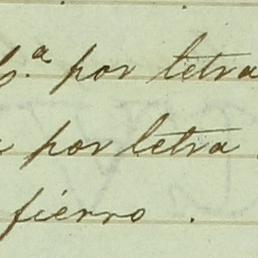 por letra
por letra
fierro .